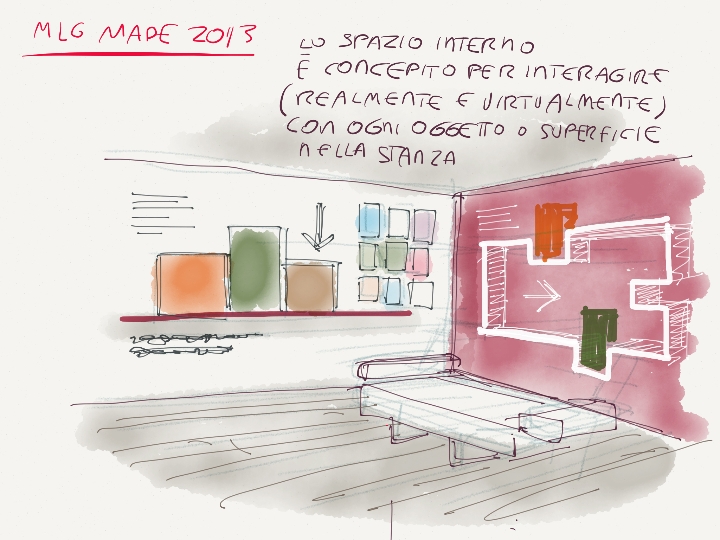 MLG MADE 2013
LO SPAZIO INTERNO
È CONCEPITO PER INTERAGIRE
(REALMENTE E VIRTUALMENTE)
CON OGNI OGGETTO O SUPERFICIE
NELLA STANZA